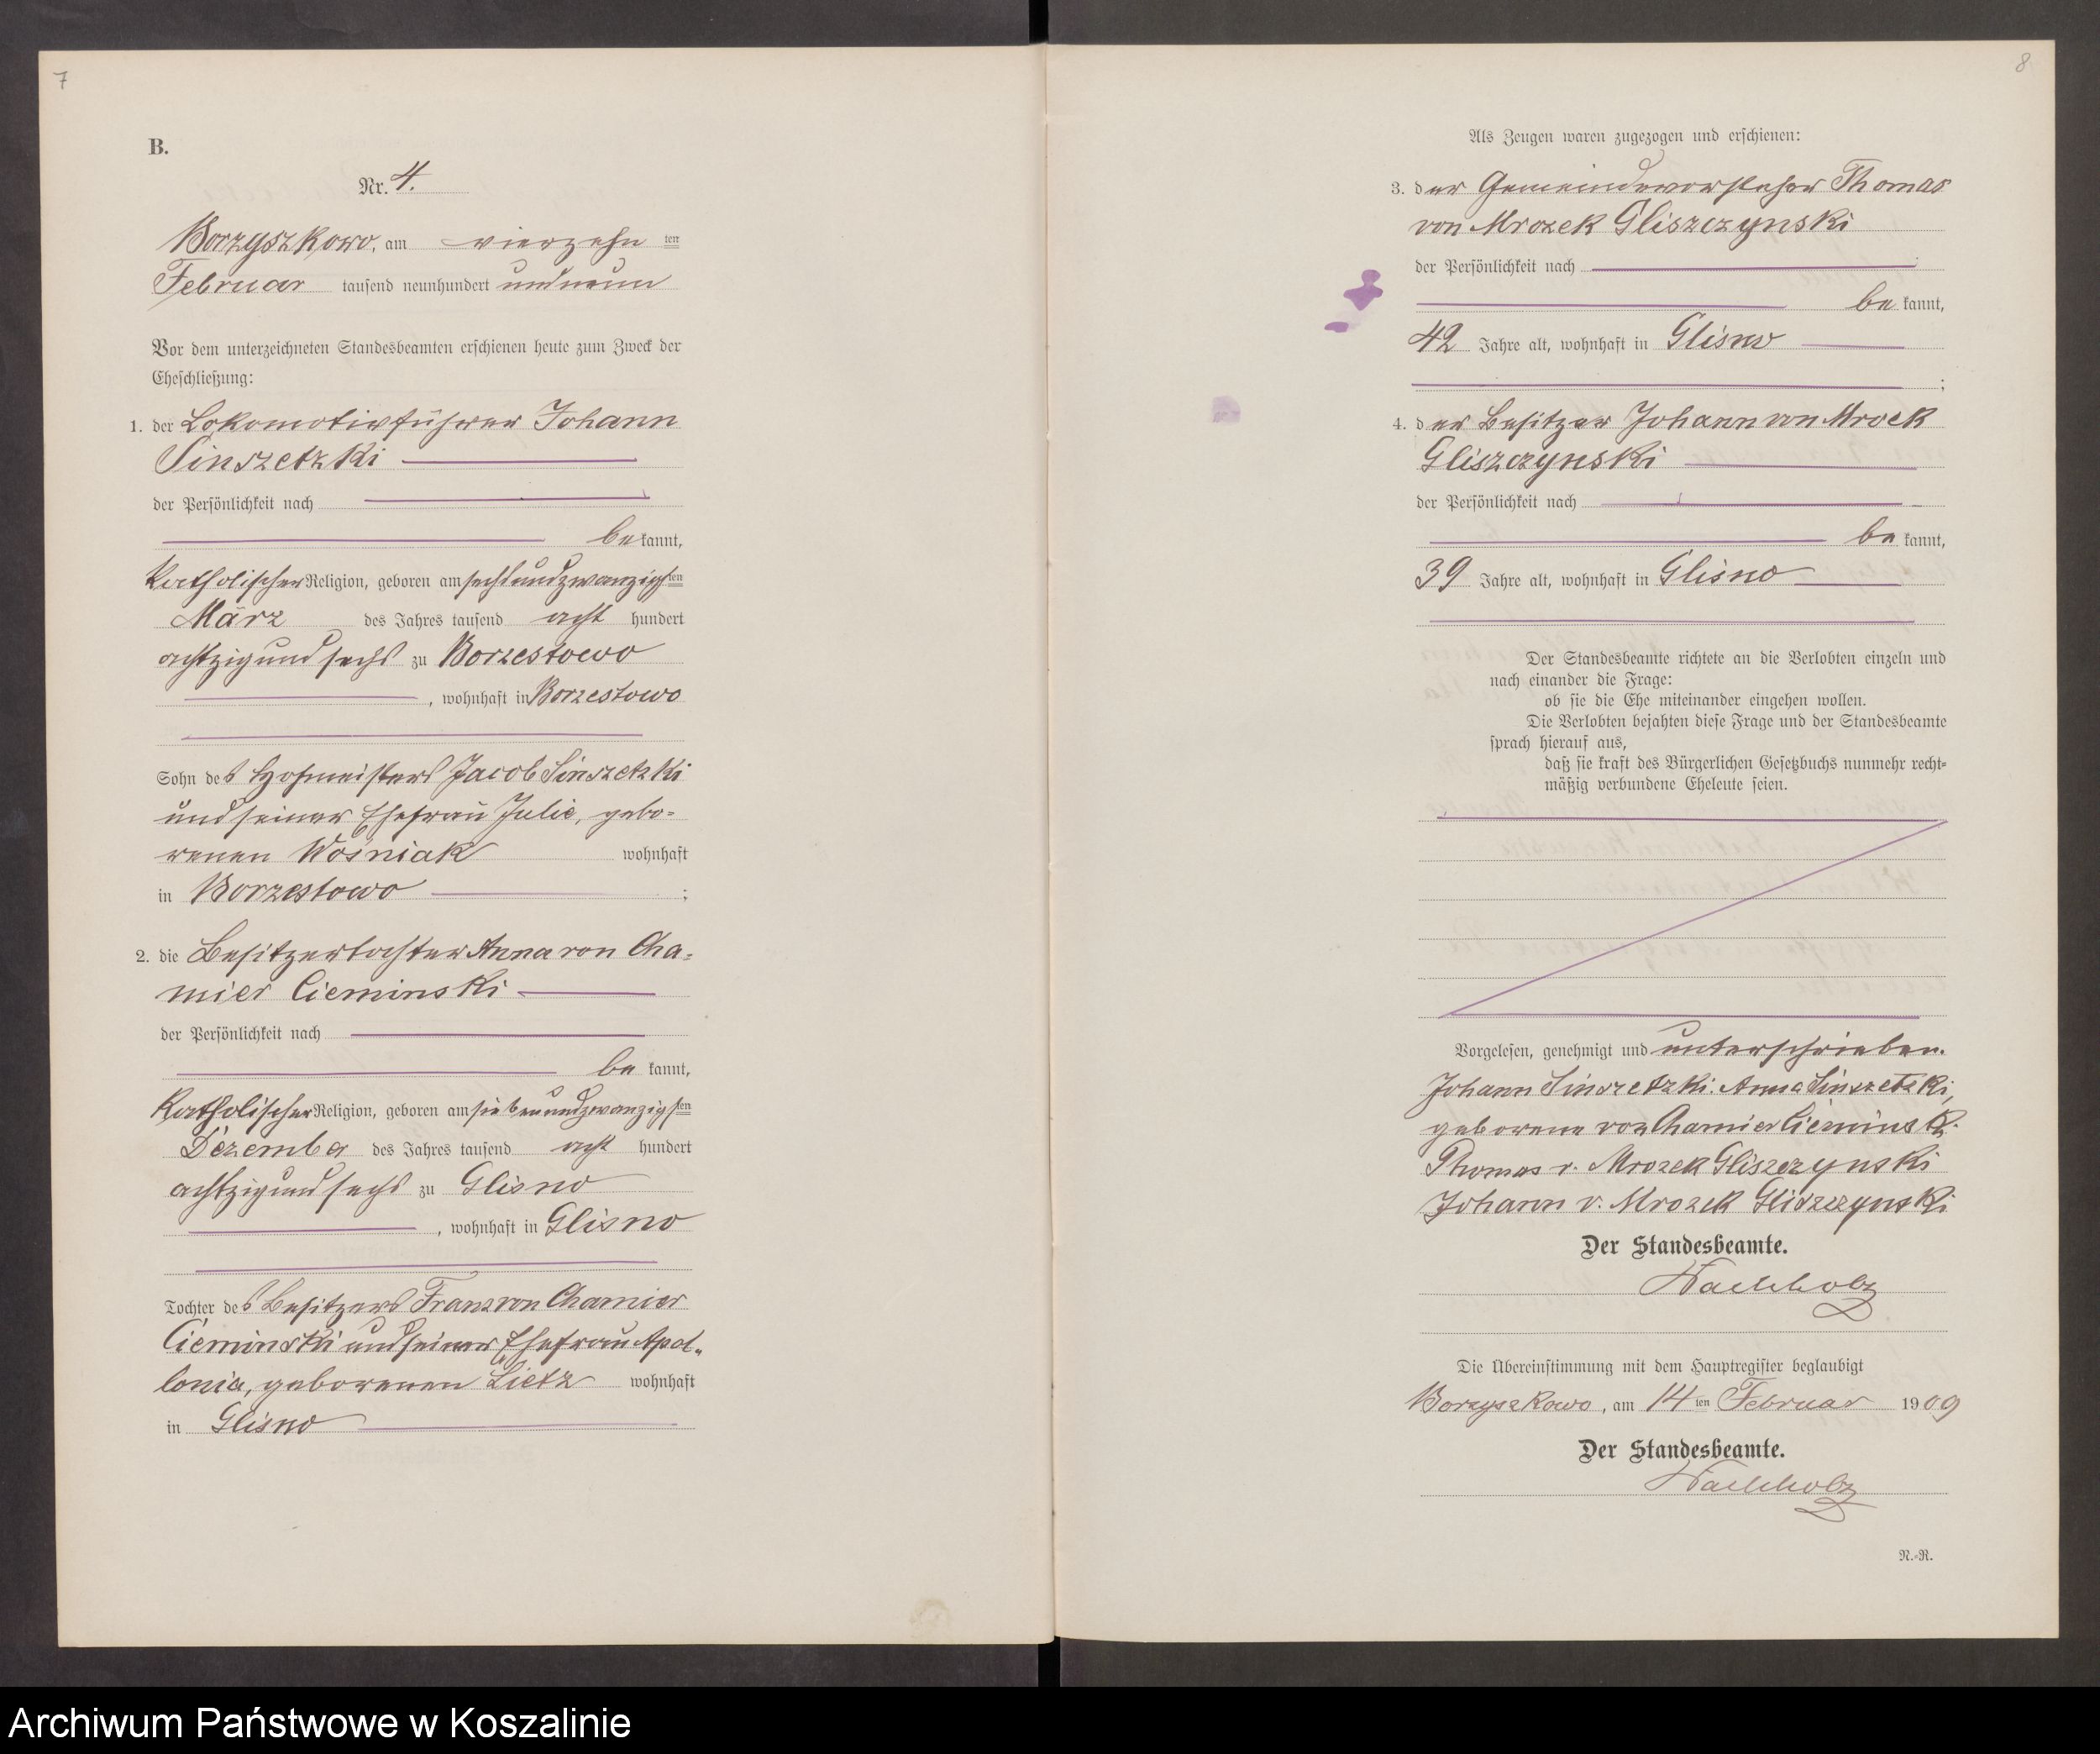 7
B.
Nr. 4.
Borzyszkowo, am vierzehn ten
Februar tausend neunhundert und neun
Vor dem unterzeichneten Standesbeamten erschienen heute zum Zweck der
Eheschließung:
1. der Lokomotivführer Johann
Sinszetzki
der Persönlichkeit nach
be kannt,
katholischer Religion, geboren am sechsundzwanzigsten
März des Jahres tausend acht hundert
achtzig und sechs zu Borzestowo
, wohnhaft in Borzestowo
Sohn des Hofmeisters Jacob Sinszetzki
und seiner Ehefrau Julie, gebo-
renen Wosniak wohnhaft
in Borzestowo ;
2. die Besitzertochter Anna von Cha-
mier Cieminski
der Persönlichkeit nach
be kannt,
katholischer Religion, geboren am siebenundzwanzigsten
Dezember des Jahres tausend acht hundert
achtzig und sechs zu Glisno
, wohnhaft in Glisno
Tochter des Besitzers Franz von Chamier
Cieminski und seiner Ehefrau Apol-
lonia, geborenen Lietz wohnhaft
in Glisno
8
Als Zeugen waren zugezogen und erschienen:
3. der Gemeindevorsteher Thomas
von Mrozek Gliszczynski
der Persönlichkeit nach
be kannt,
42 Jahre alt, wohnhaft in Glisno
;
4. der Besitzer Johann von Mrock
Gliszczynski
der Persönlichkeit nach
be kannt,
39 Jahre alt, wohnhaft in Glisno
Der Standesbeamte richtete an die Verlobten einzeln und
nach einander die Frage:
ob sie die Ehe miteinander eingehen wollen.
Die Verlobten bejahten diese Frage und der Standesbeamte
sprach hierauf aus,
daß sie kraft des Bürgerlichen Gesetzbuchs nunmehr recht-
mäßig verbundene Eheleute seien.
Vorgelesen, genehmigt und unterschrieben.
Johann Sinszetzki. Anna Sinszetzki,
geborene von Chamier Cieminski.
Thomas v. Mrozek Gliszczynski
Johann v. Mrozek Gliszczynski
Der Standesbeamte.
Wachholz
Die Übereinstimmung mit dem Hauptregister beglaubigt
Borzyszkowo, am 14 ten Februar 1909
Der Standesbeamte.
Wachholz
N.-R.
Archiwum Państwowe w Koszalinie